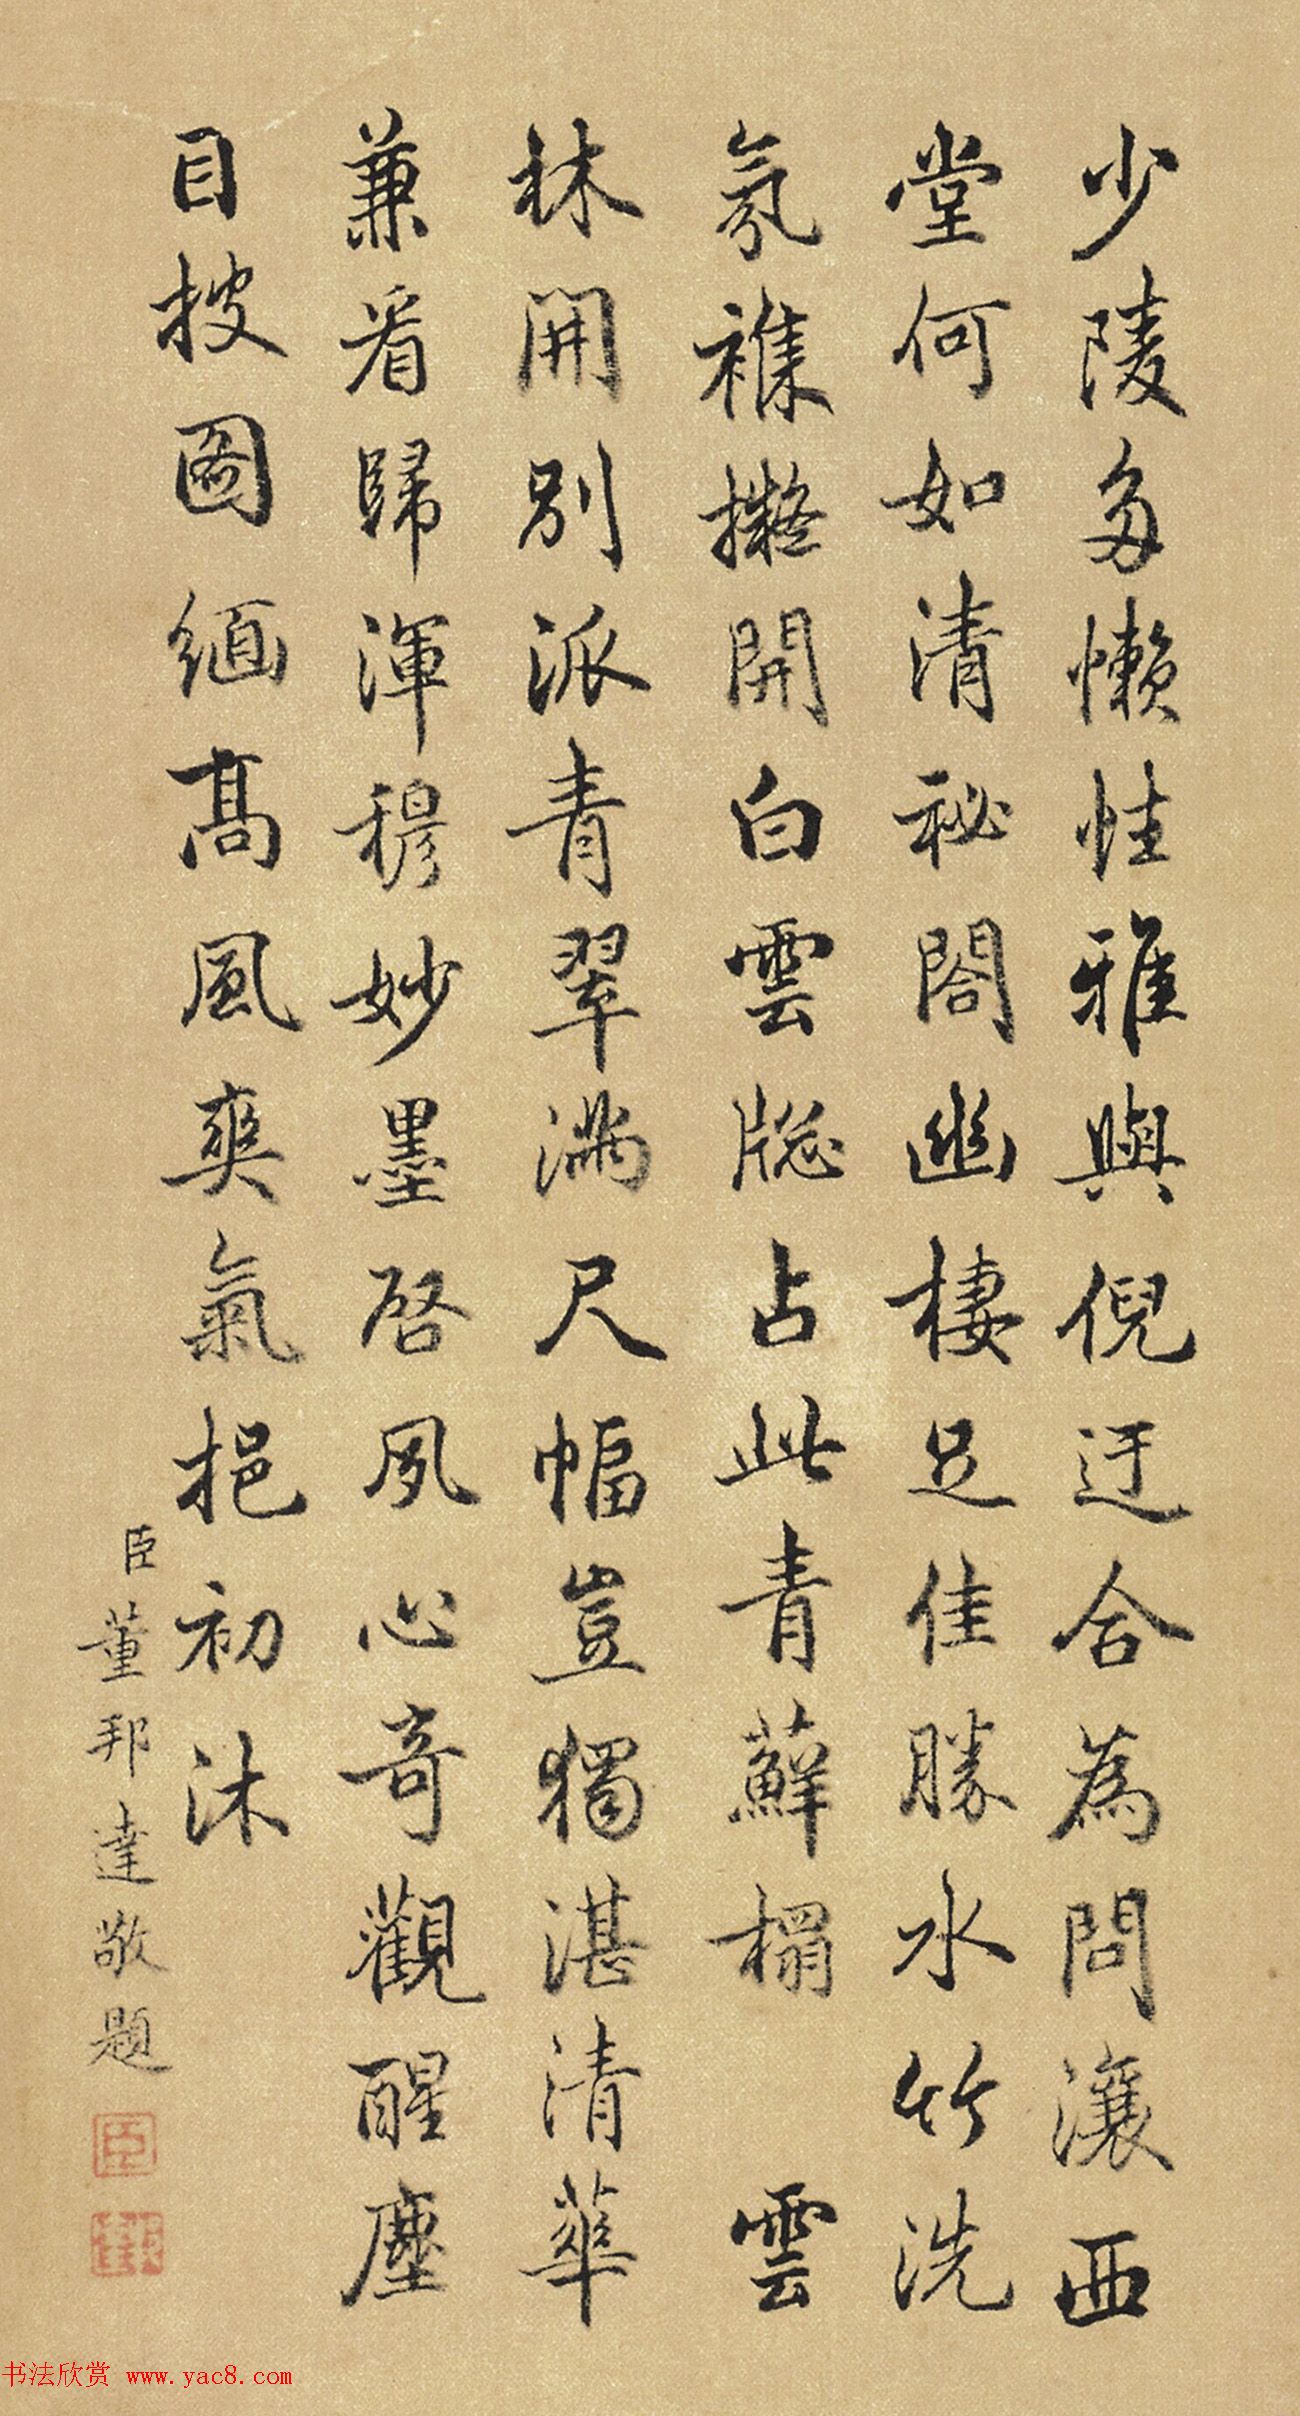 少陵多懶性雅與倪迂合為問瀼西
堂何如清祕閣幽棲足佳勝水竹洗
氛襍擬開白雲牕占此青蘚榻 雲
林開別派青翠滿尺幅豈獨湛清華
兼看歸渾穆妙墨啓夙心奇觀醒塵
目披圖緬髙風爽氣挹初沐
臣董邦達敬題
臣
书法欣赏 www.yac8.com